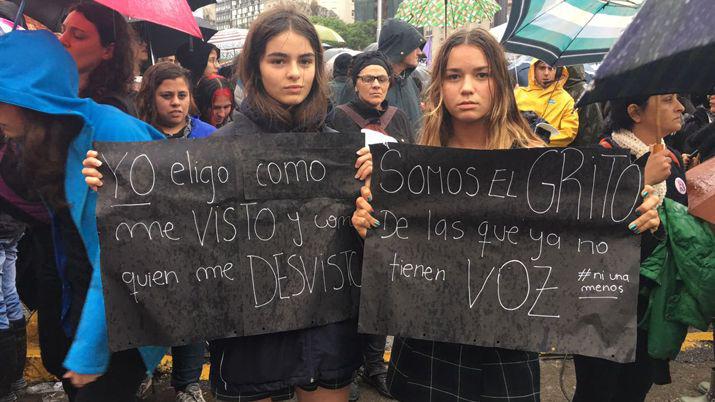 YO eligo como
me VISTO y com
quien me DESVISTO
SOMOS EL GRITO
De las que ya no
tienen VOZ
#ni una
menos